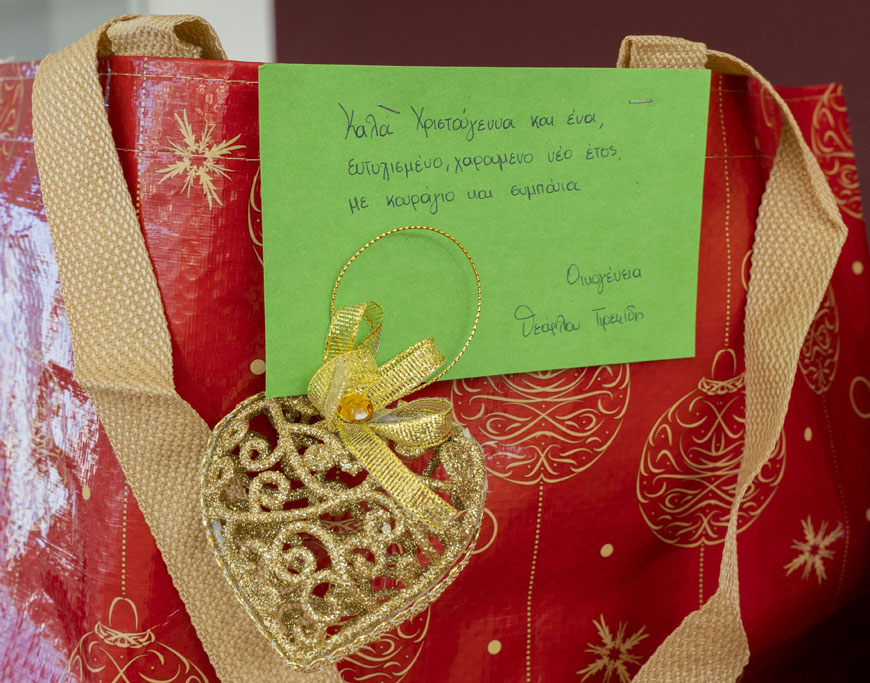 Καλά Χριστούγεννα και ένα,
ευτυχισμένο, χαρούμενο νέο έτος,
με κουράγιο και συμπόνια
Οικογένεια